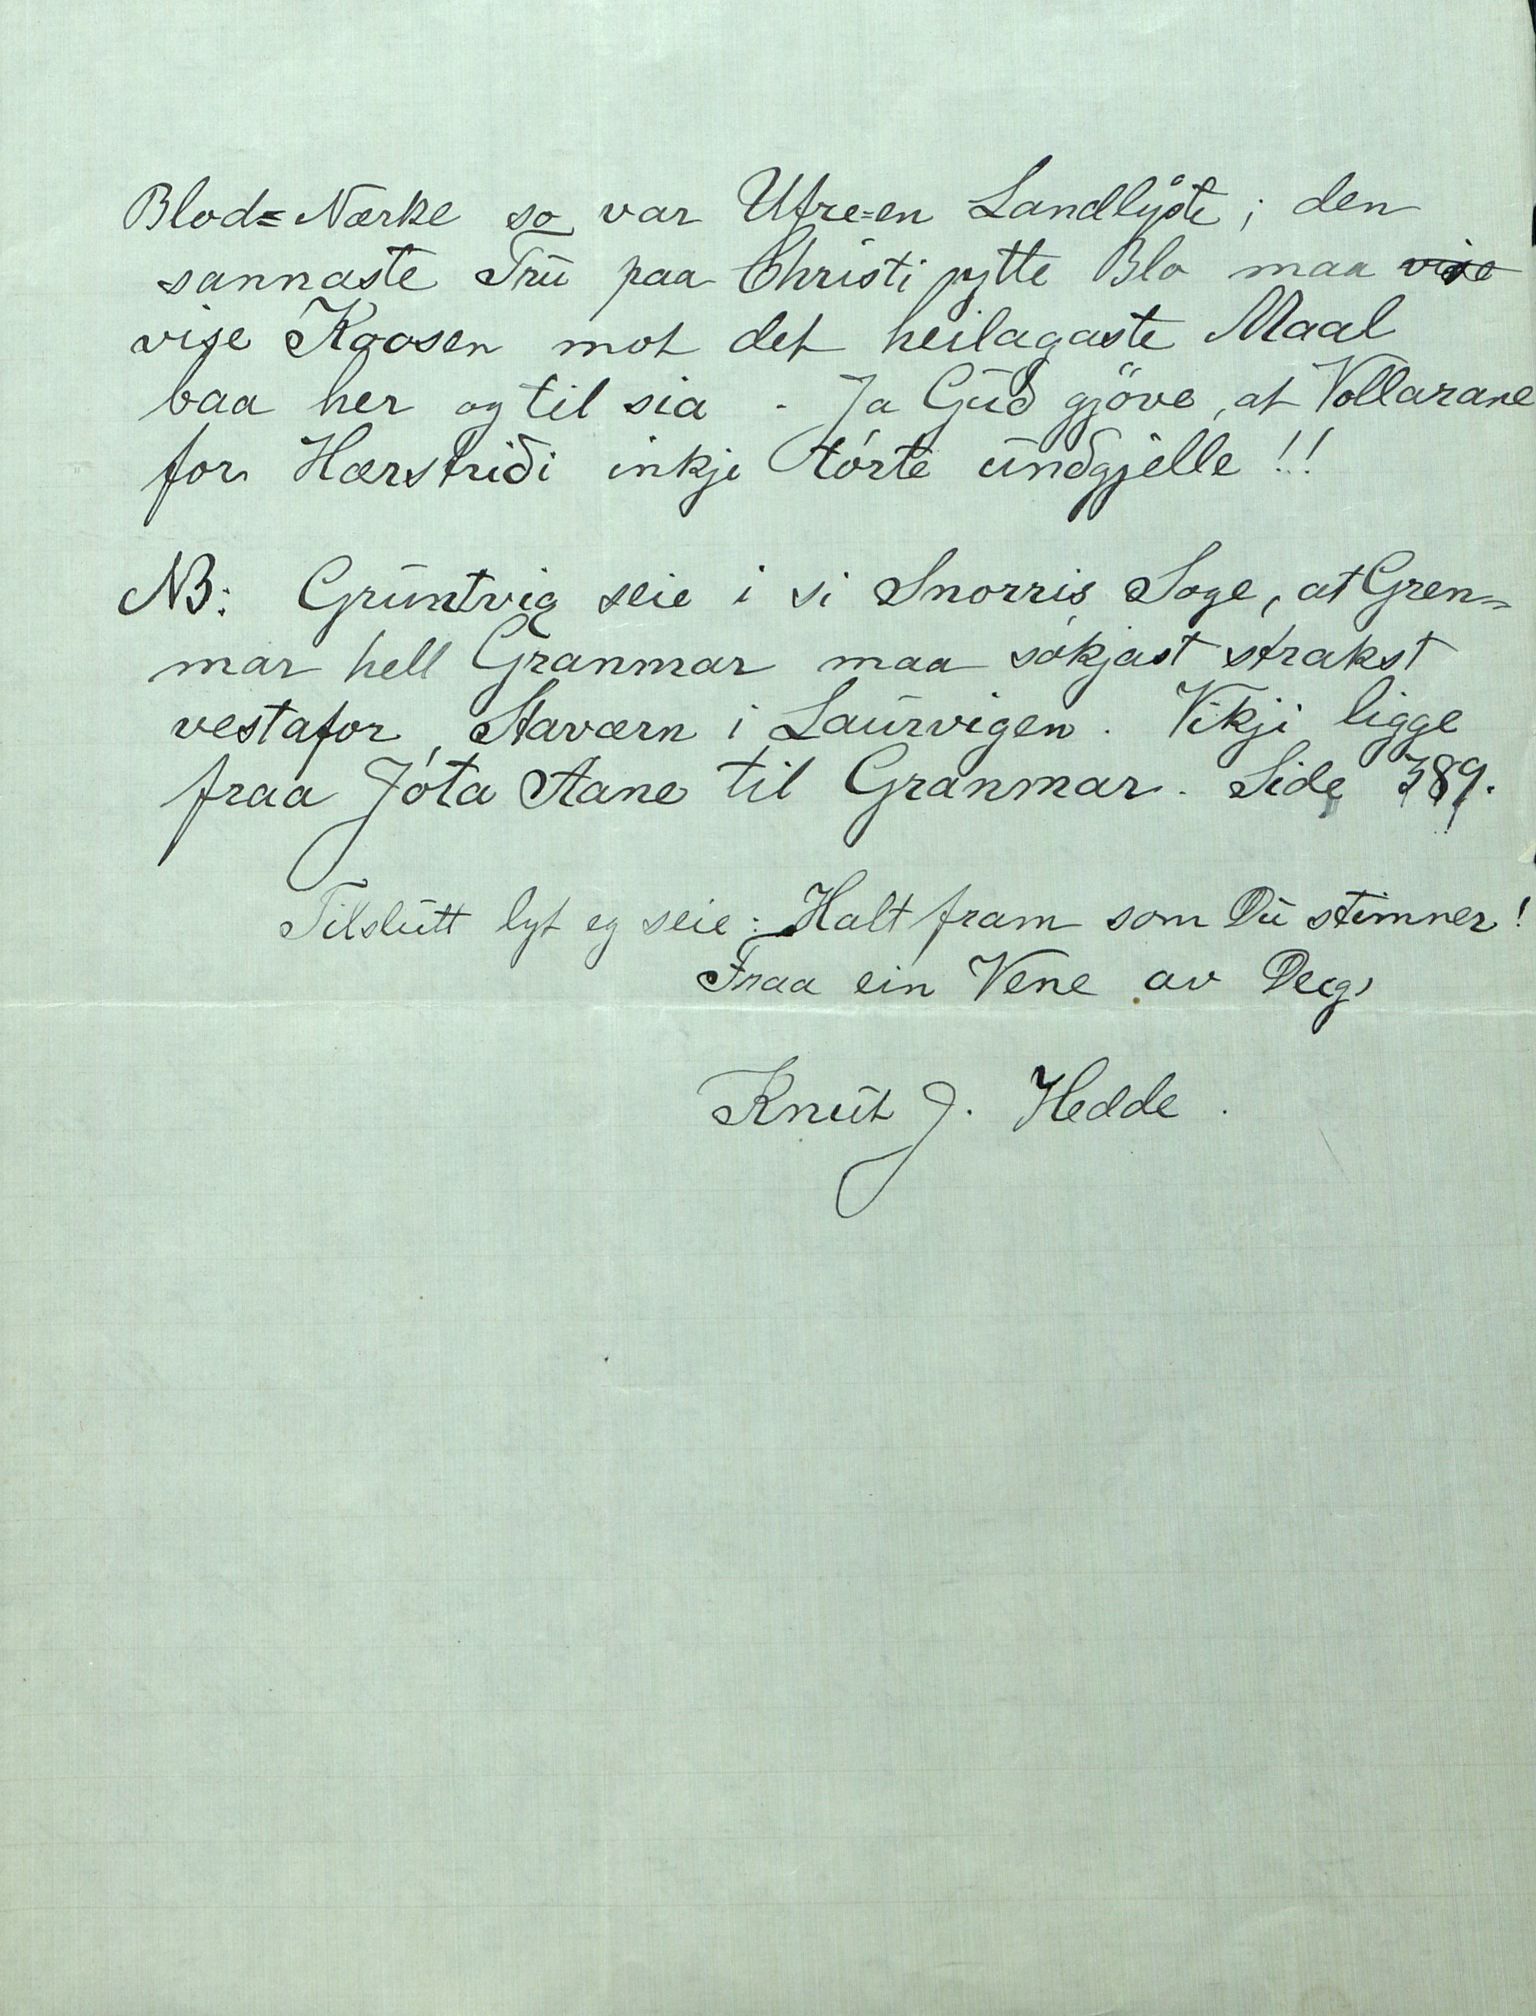 Blod=Nærke so var Ufre=en Landlyste; den
sannaste Tru paa Christi pytte Blo maa vise
vise Koosen mot det heilagaste Maal
baa her og til sia. Ja Guð gjöve, at Vollarane
for Hærstriði inkje tórte undgjelle!!
NB: Gruntvig seie i si Snorris Soge, at Gren=
mar hell Granmar maa sökjast strakst
vestafor Staværn i Laurvigen. Vikji ligge
fraa Jóta Aane til Granmar. Side 389.
Tilslutt lyt eg seie: Halt fram som Du stemner!
Fraa ein Vene av Deg,
Knut J. Hedde.